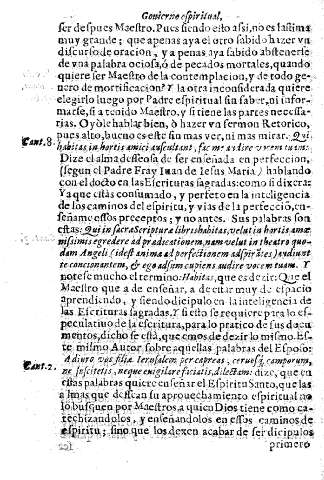 Gouierno espiritual,
ser despues Maestro. Pues siendo esto assi, no es lastima
muy grande; que apenas aya el otro sabido hazer vn
discurso de oracion, y a penas aya sabido abstenerse
de vna palabra ociosa, ò de pecados mortales, quando
quiere ser Maestro de la contemplacion, y de todo ge-
nero de mortificacion? Y la otra inconsiderada quiere
elegirlo luego por Padre espiritual sin saber, ni infor-
marse, si a tenido Maestro, y si tiene las partes necessa-
rias. O yòle hablar bien, ò hazer vn sermon Retorico,
pues alto, bueno es este sin mas ver, ni mas mirar. Qui
Cant. 8. habitas in hortis amici auscultant, fac me audire vocem tuam.
Dize el alma desseosa de ser enseñada en perfeccion,
(segun el Padre Fray Iuan de Iesus Maria) hablando
con el docto en las Escrituras sagradas: como si dixera:
Ya que estàs consumado, y perfeto en la inteligencia
de los caminos del espiritu, y vias de la perfeciò, en-
señame essos preceptos; y no antes. Sus palabras son
estas: Qui in sacræ Scripturæ libris habitas, velut in hortis amœ
nissimis egredere ad prædicationem, nam velut in theatro quo-
dam Angeli (idest animæ ad perfectionem adspirãtes) audiunt
te concionantem, & ego adsum cupiens audire vocem tuam. Y
notese mucho el termino: Habitas, que es dezir: Que el
Maestro que a de enseñar, a de estar muy de espacio
aprendiendo, y siendo dicipulo en la inteligencia de
las Escrituras sagradas. Y si esto se requiere para lo es-
peculatiuo de la escritura, para lo pratico de sus docu
mentos, dicho se està, que emos de dezir lo mismo. Es-
te mismo Autor sobre aquellas palabras del Esposo:
Adiuro vos filiæ Ierusalem per capreas, ceruosq; camporum,
Cant. 2. ne suscitetis, neque euigilare faciatis, dilectam: dize, que en
estas palabras quiere enseñar el Espiritu Santo, que las
almas que dessean su aprouechamiento espiritual no
lo busquen por Maestros, a quien Dios tiene como ca-
techizandolos, y enseñandolos en essos caminos de
espiritu; sino que los dexen acabar de ser dicipulos
primero